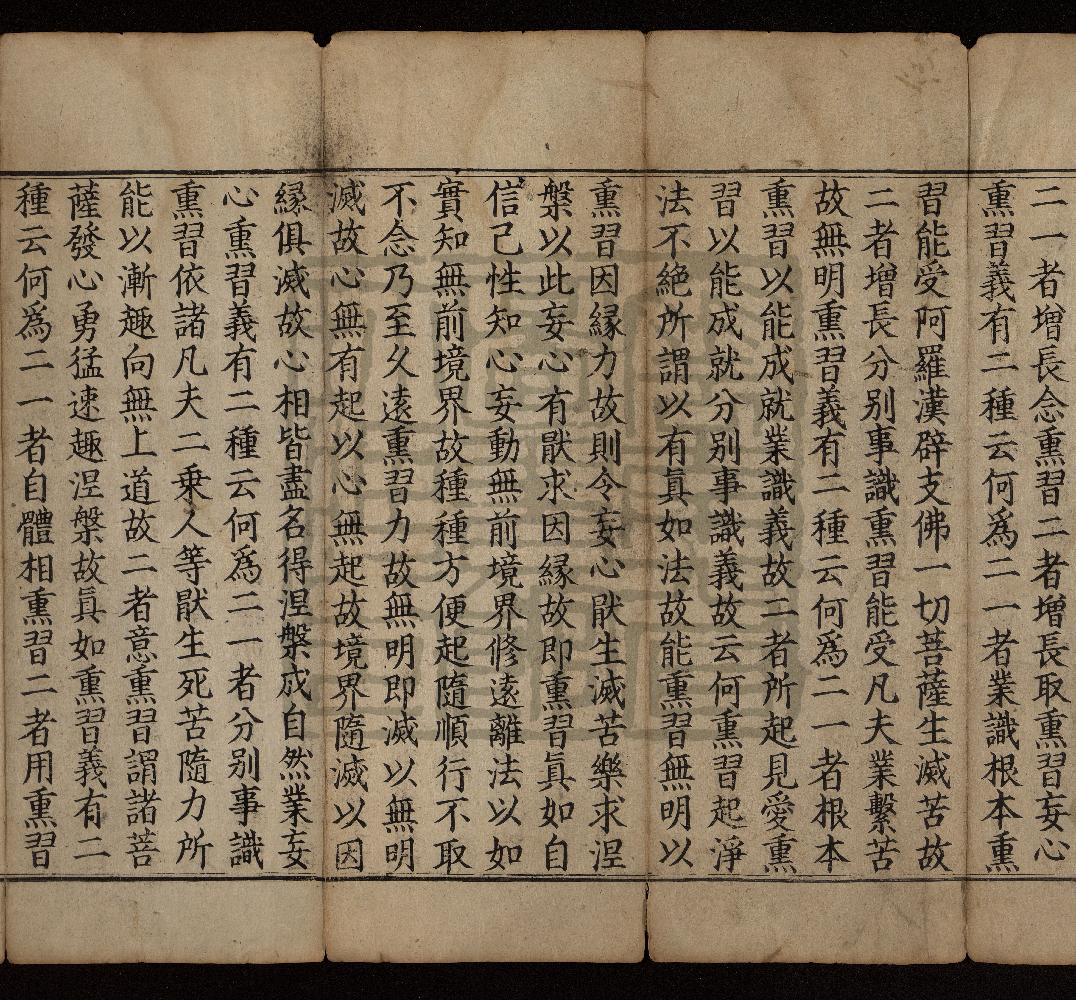 二一者增長念熏習二者增長取熏習妄心
熏習義有二種云何為二一者業識根本熏
習能受阿羅漢辟支佛一切菩薩生滅苦故
二者增長分别事識熏習能受凡夫業繫苦
故無明熏習義有二種云何為二一者根本
熏習以能成就業識義故二者所起見愛熏
習以能成就分别事識義故云何熏習起淨
法不絶所謂以有真如法故能熏習無明以
熏習因縁力故則令妄心猒生滅苦樂求涅
槃以此妄心有猒求因縁故即熏習真如自
信己性知心妄動無前境界修遠離法以如
實知無前境界故種種方便起隨順行不取
不念乃至久遠熏習力故無明即滅以無明
滅故心無有起以心無起故境界隨滅以因
縁俱滅故心相皆盡名得涅槃成自然業妄
心熏習義有二種云何為二一者分别事識
熏習依諸凡夫二乗人等猒生死苦隨力所
能以漸趣向無上道故二者意熏習謂諸菩
薩發心勇猛速趣涅槃故真如熏習義有二
種云何為二一者自體相熏習二者用熏習